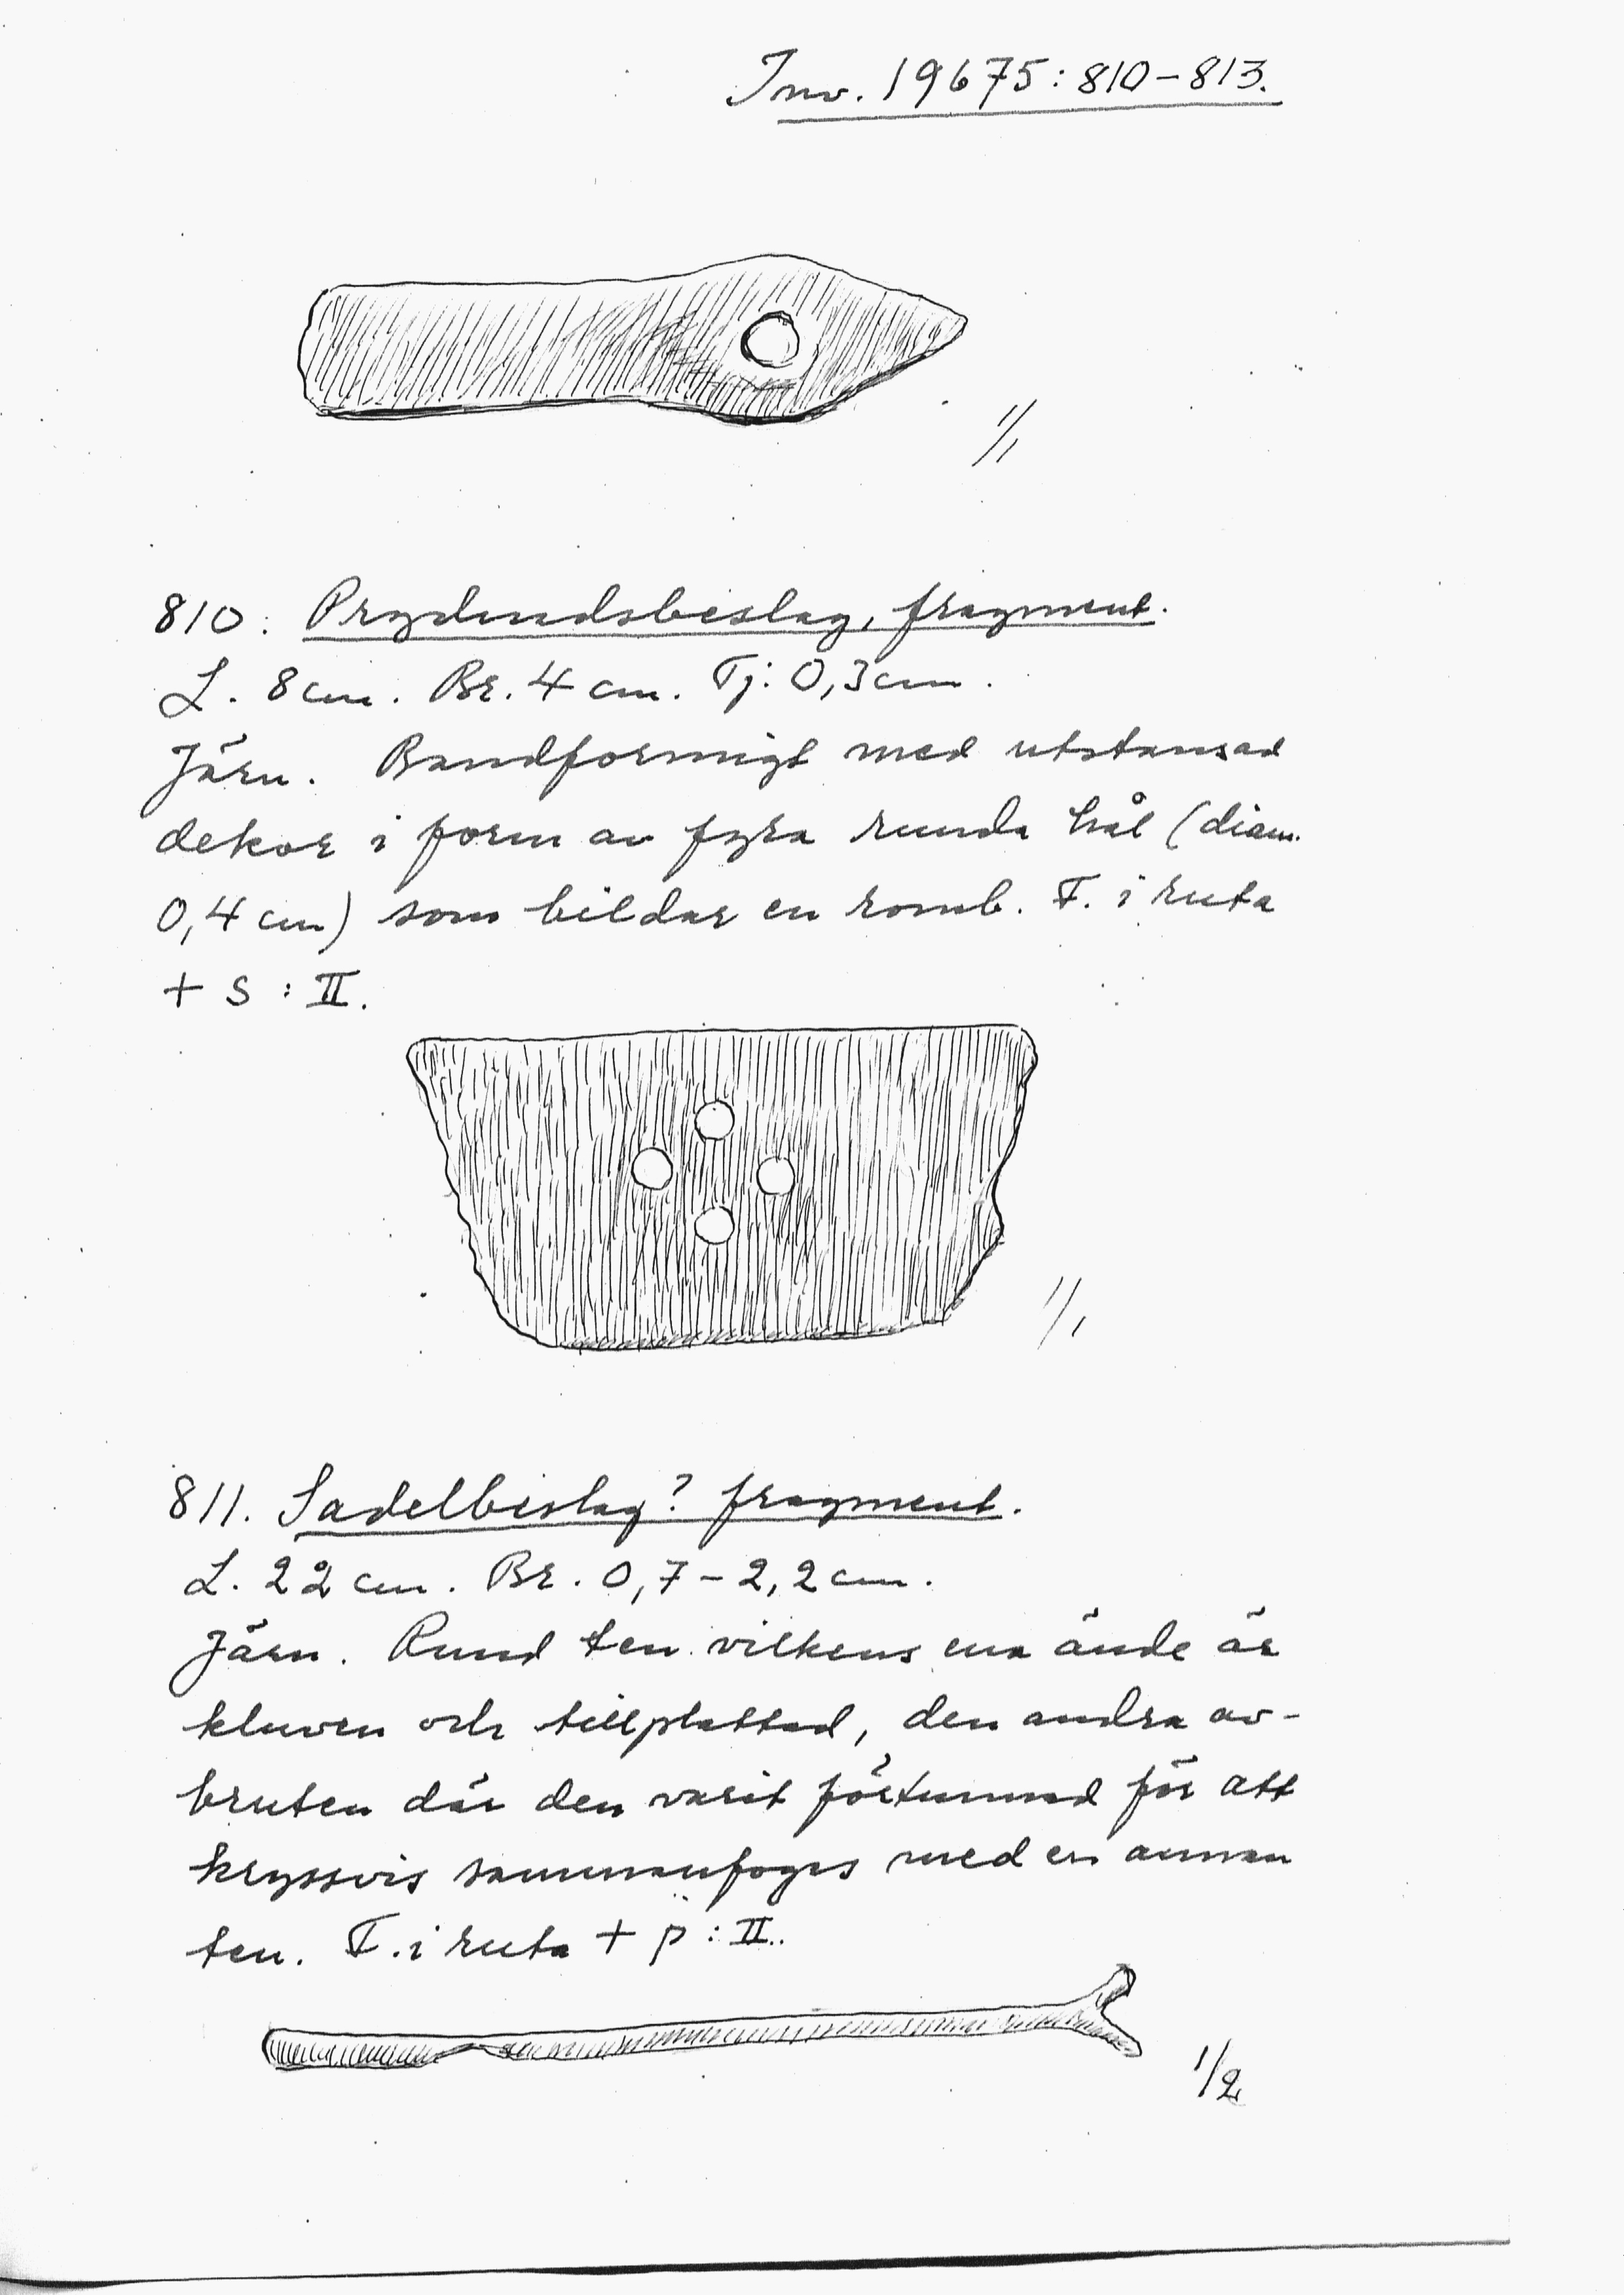 Inv. 19675:810-813.
1/1
810. Prydnadsbeslag, fragment.
L. 8 cm. Br. 4 cm. Tj: 0,3 cm.
Järn. Bandformigt med utstansad
dekor i form av fyra runda hål (diam.
0,4 cm) som bildar en romb. F. i ruta
+ s : II.
1/1
811. Sadelbeslag? fragment.
L. 22 cm. Br. 0,7-2,2 cm.
Järn. Rund ten vilkens ena ände är
kluven och tillplattad, den andra av-
bruten där den varit förtunnad för att
kryssvis sammanfogas med en annan
ten. F. i ruta + p : II.
1/2